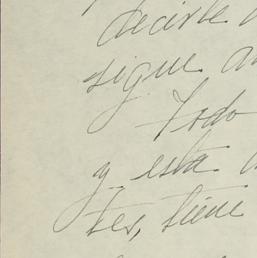 decirle
sigue
Todo
y está
tes, tiene